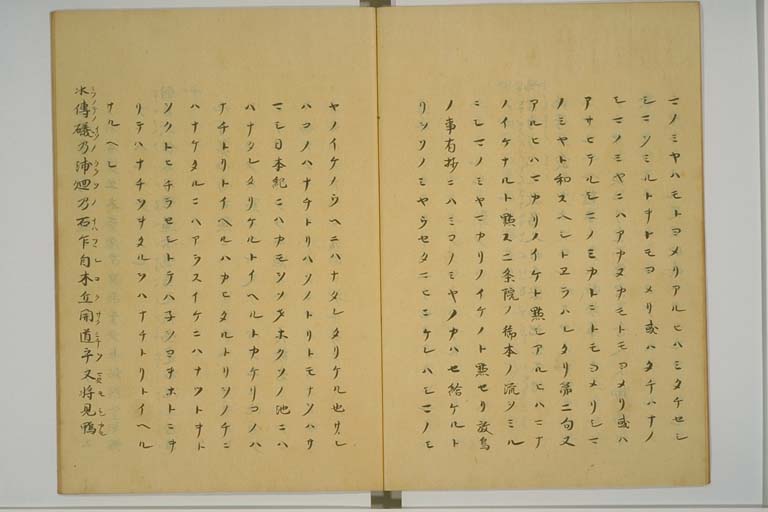 マノミヤハモトヨメリアルヒハミタチセシ
シマツミルトオトモヨメリ或ハタチハナノ
シマノミヤニハアカヌカモトモヨメリ或ハ
アサヒテルシマノミカトニトモヨメリシマ
ノミヤト和スヘシトヱラハレタリ第二句又
アルヒハマカリノイケト點シアルヒハニナ
ノイケナルト點ス二条院ノ御本ノ流ツミル
ニシマノミヤマカリノイケノト點セリ放鳥
ノ事有抄ニハミコノミヤノカハセ給ケルト
リツツノミヤラセタマヒニケレハシマノミ
ヤノイケノウヘニハナタレタリケル也サレ
ハコノハナチトリハソノトリトモナシハサ
マシ日本紀ニハカモシツメホクソノ池ニハ
ハナタレタリケルトイヘルトカケリコノハ
ナチトリトイヘルハカヒタルトリソノチニ
ハナケタルニハアラスイケニハナツトオト
ソクトヒチラセシトテハネシヨキホトニオ
リテハナチソヲタルツハナチトリトイヘル
ナルヘシ
水傳礒乃浦廻乃石乍自木丘開道乎又將見鴨